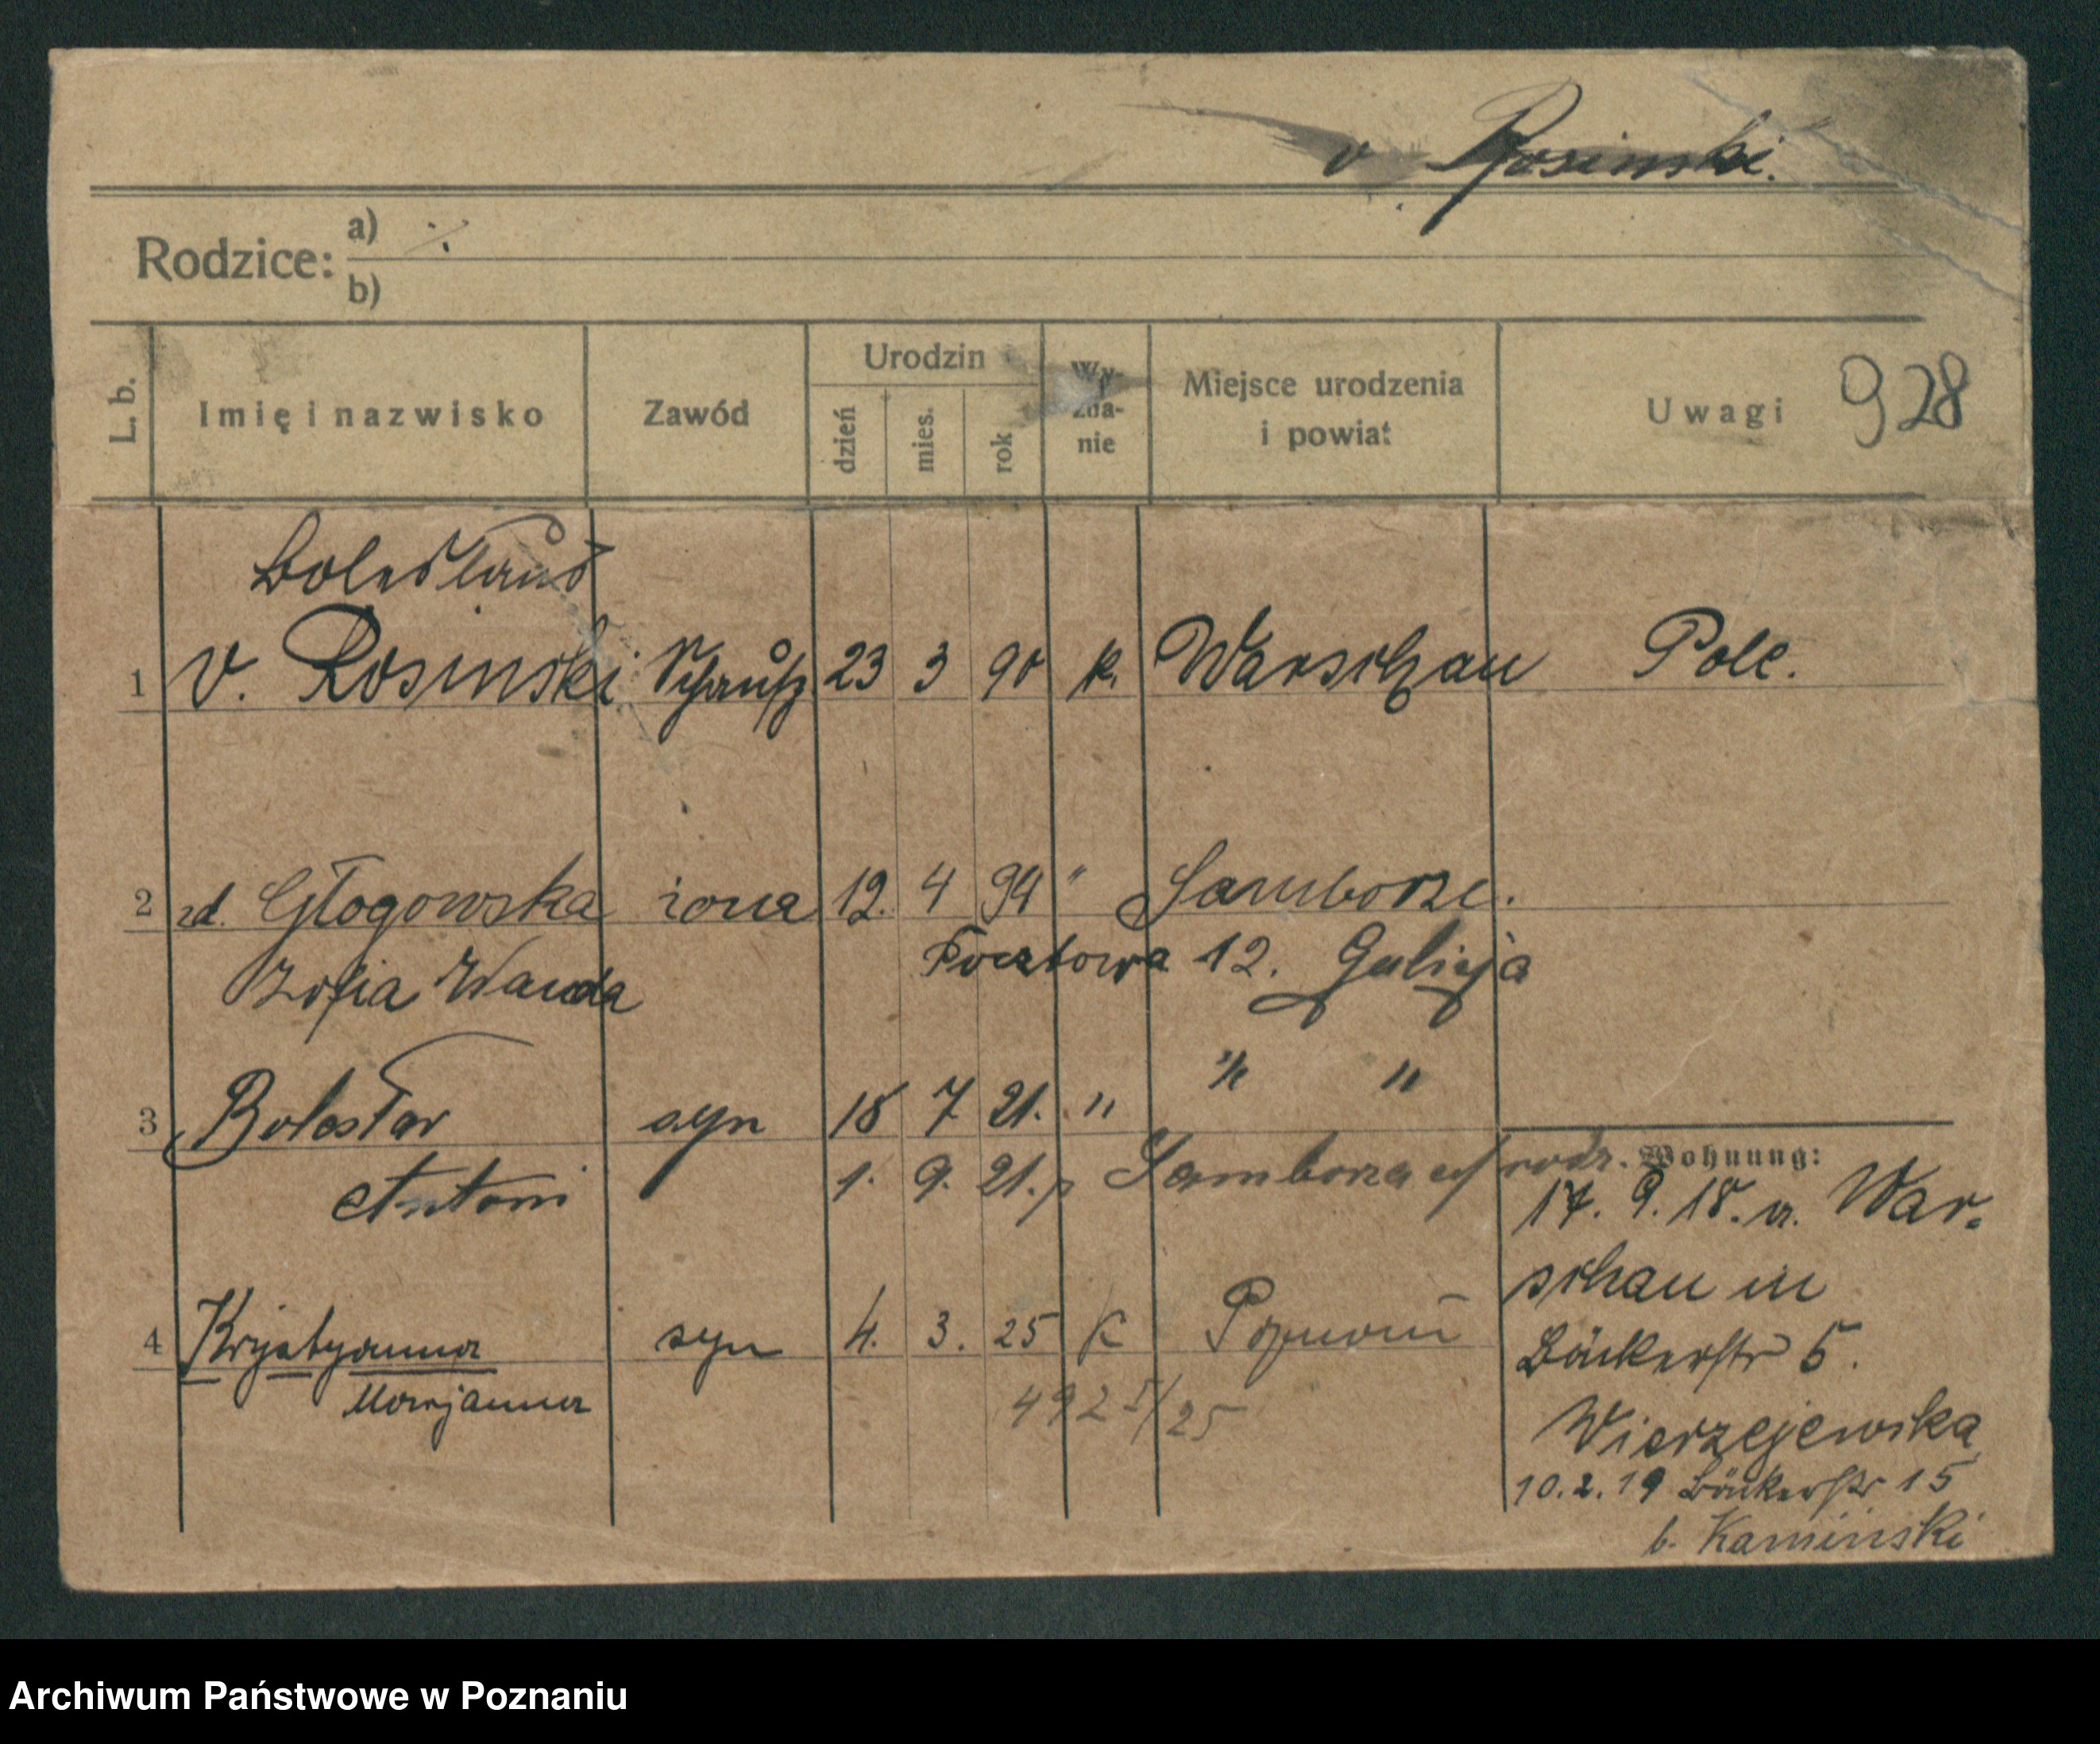 v. Rosinski.
Rodzice: a) ·/.
b)
L. b. Imię i nazwisko Zawód Urodzin dzień mies. rok Wy-zna-nie Miejsce urodzenia i powiat Uwagi 928
Boleslaus
1 v. Rosinski 23 3 90 k. Warschau Pole.
2 zd. Głogowska żona 12. 4 94 " Samborze.
Zofia Wanda Pocztowa 12. Galicja
" "
3 Bolesław syn 18 7 21. "
Antoni 1. 9. 21. Samborza rodz. Wohnung:
17. 9. 18. a. War-
schau in
4 Krystyanna syn 4. 3. 25 K Poznań
Bäckerstr 5.
Maryanna 492 I/25
Wierzejewska
10. 2. 19 Bäckerstr 15
b. Kaminski
Archiwum Państwowe w Poznaniu